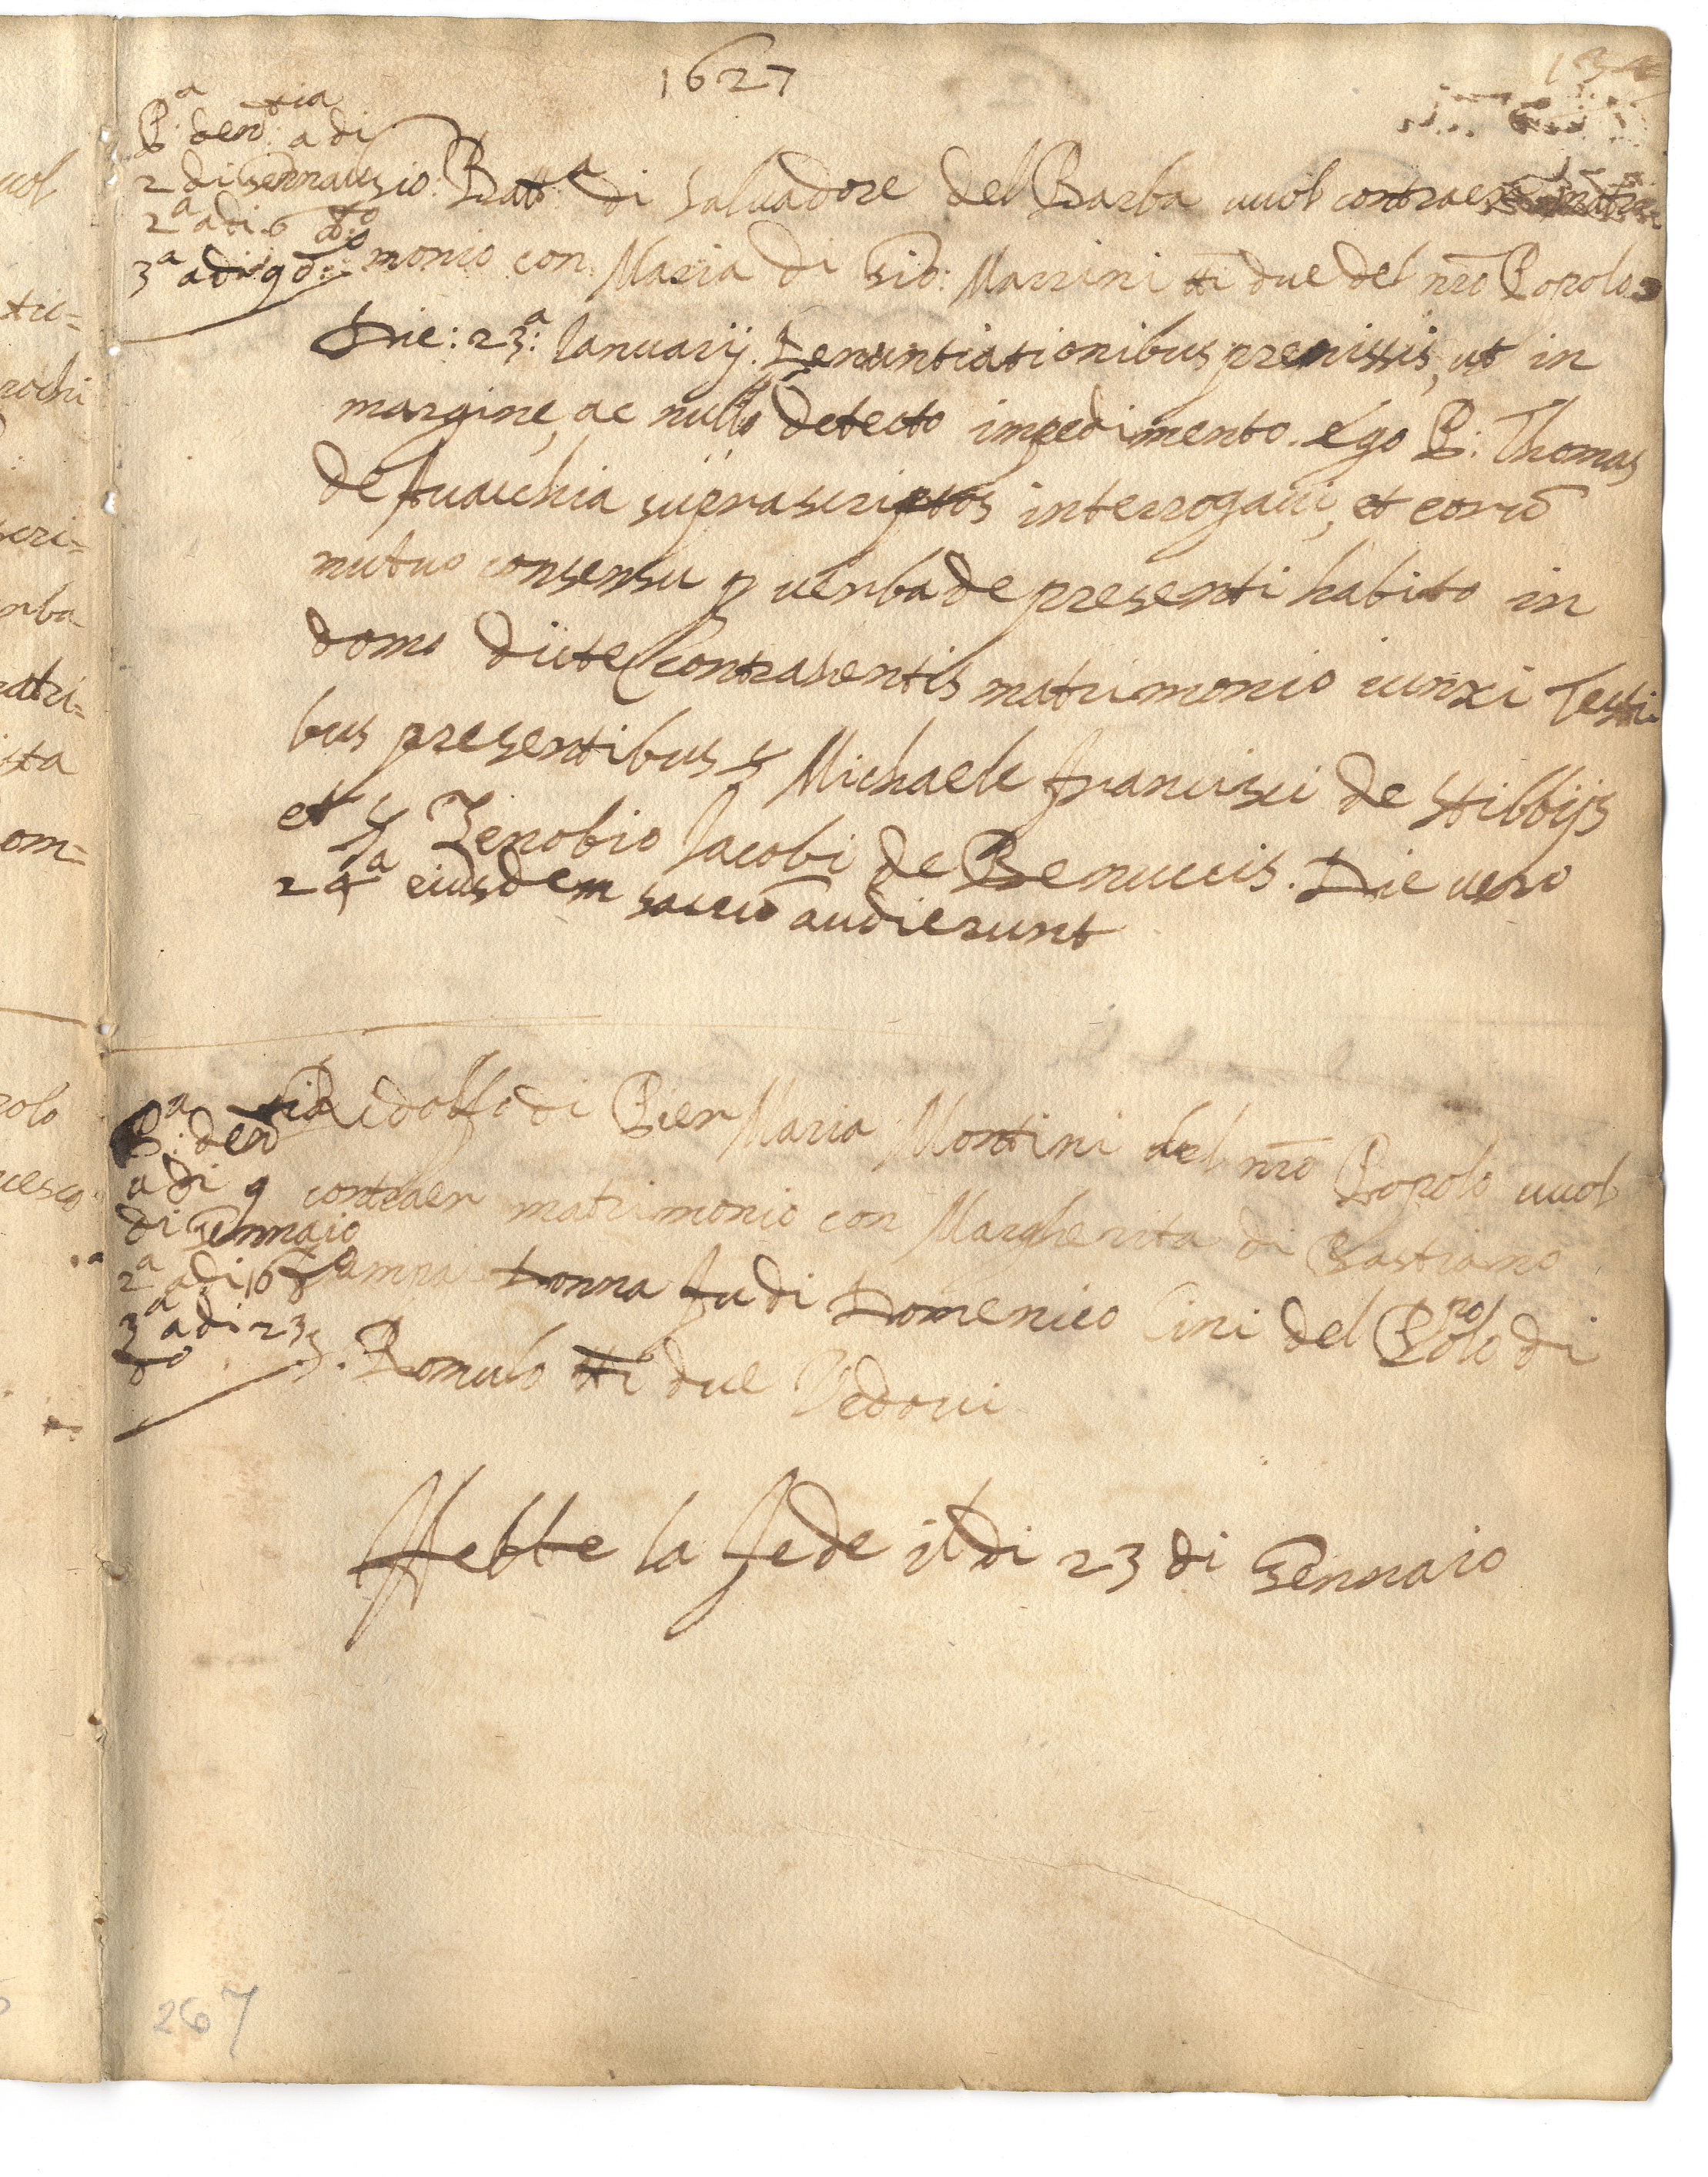 1627
P.a den:tia a di
2 di Gennaio
2.a adi 6 d:o
3.a adi 9 d:o
Gio: Batt.a di Saluadore del Barba uuol contraer matri
monio con Maria di Gio: Marrini tti due del nr̃o Popolo
Die: 23:a Ianuarij. Denuntiationibus premissis, ut in
margine, ac nullo detecto impedimento. ego P: Thomas
de suprascriptos interrogaui, et eorũ
mutuo consensu p uerba de presenti habito in
domo dicte contrahentis matrimonio iunxi Testi-
bus presentibus s Michaele Francisci de Stibbijs
et s Zenobio Iacobi de Benuccis. Die uero
24.a eiusdem sacrũ audierunt
P.a: den:tia
adi 9
di Gennaio
2.a adi 16 d.o
3.a adi 23
d.o
Ridolfo di Pier Maria Montini del nr̃o Popolo uuol
contraer matrimonio con Margherita di Bastiano
Ciampa Donna fu di Domenico Cini del Popolo di
S. Romulo tti due Vedoui
Hebbe la fede il di 23 di Gennaio
267
uol
tri=
rochi
scri=
erba
matri=
ista
om=
polo
cesco